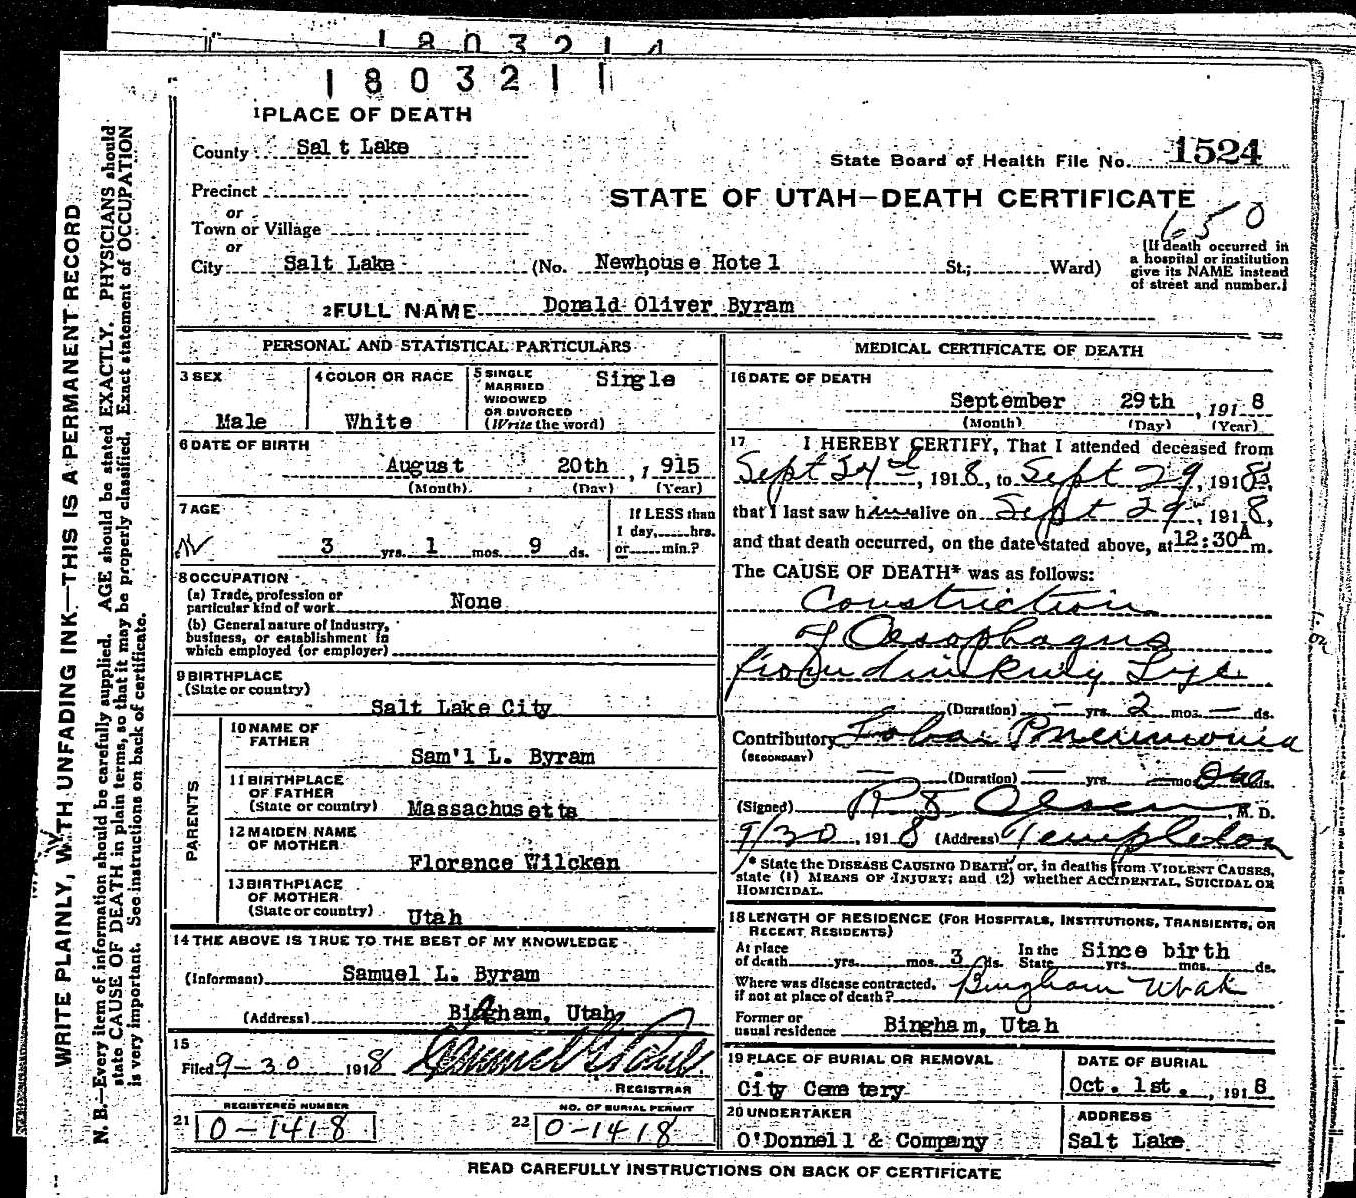 1803214
1803211
1 PLACE OF DEATH
County Salt Lake
State Board of Health File No. 1524
Precinct
STATE OF UTAH—DEATH CERTIFICATE
650
or
Town or Village
or
City Salt Lake (No. Newhouse Hotel St.; Ward)
[If death occurred in
a hospital or institution
give its NAME instead
of street and number.]
2 FULL NAME Donald Oliver Byram
PERSONAL AND STATISTICAL PARTICULARS
3 SEX
Male
4 COLOR OR RACE
White
5 SINGLE
MARRIED
WIDOWED
OR DIVORCED
(Write the word)
Single
6 DATE OF BIRTH
August 20th, 1915
(Month) (Day) (Year)
7 AGE
3 yrs. 1 mos. 9 ds.
If LESS than
1 day, hrs.
or min.?
8 OCCUPATION
(a) Trade, profession or
particular kind of work None
(b) General nature of Industry,
business, or establishment in
which employed (or employer)
9 BIRTHPLACE
(State or country)
Salt Lake City
PARENTS
10 NAME OF
FATHER
Sam'l L. Byram
11 BIRTHPLACE
OF FATHER
(State or country) Massachusetts
12 MAIDEN NAME
OF MOTHER
Florence Wilcken
13 BIRTHPLACE
OF MOTHER
(State or country) Utah
14 THE ABOVE IS TRUE TO THE BEST OF MY KNOWLEDGE
(Informant) Samuel L. Byram
(Address) Bingham, Utah
15
Filed 9-30 1918
REGISTRAR
REGISTERED NUMBER
21 0-1418
NO. OF BURIAL PERMIT
22 0-1418
MEDICAL CERTIFICATE OF DEATH
16 DATE OF DEATH
September 29th, 1918
(Month) (Day) (Year)
17 I HEREBY CERTIFY, That I attended deceased from
Sept 24th, 1918, to Sept 29, 1918,
that I last saw him alive on Sept 29, 1918,
and that death occurred, on the date stated above, at 12:30A m.
The CAUSE OF DEATH* was as follows:
Constriction
of Oesophagus
from drinking Lye
(Duration) — yrs. 2 mos. — ds.
Contributory Lobar Pneumonia
(SECONDARY)
(Duration) — yrs. — mos. ds.
(Signed) Olsen, M. D.
9/30, 1918 (Address) Templeton
* State the DISEASE CAUSING DEATH, or, in deaths from VIOLENT CAUSES,
state (1) MEANS OF INJURY; and (2) whether ACCIDENTAL, SUICIDAL OR
HOMICIDAL.
18 LENGTH OF RESIDENCE (FOR HOSPITALS, INSTITUTIONS, TRANSIENTS, OR
RECENT RESIDENTS)
At place
of death yrs. mos. 3 ds.
In the
State Since birth yrs. mos. ds.
Where was disease contracted,
if not at place of death? Bingham Utah
Former or
usual residence Bingham, Utah
19 PLACE OF BURIAL OR REMOVAL
City Cemetery
DATE OF BURIAL
Oct. 1st., 1918
20 UNDERTAKER
O'Donnell & Company
ADDRESS
Salt Lake
READ CAREFULLY INSTRUCTIONS ON BACK OF CERTIFICATE
WRITE PLAINLY, WITH UNFADING INK—THIS IS A PERMANENT RECORD
N. B.—Every item of information should be carefully supplied. AGE should be stated EXACTLY. PHYSICIANS should
state CAUSE OF DEATH in plain terms, so that it may be properly classified. Exact statement of OCCUPATION
is very important. See instructions on back of certificate.